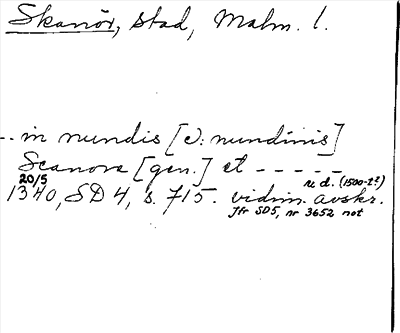 Skanör, stad, Malm. l.
-- in nundis [ɔ: nundinis]
Scanore [gen.] et - - - - -
20/5 u. d. (1500-t?)
1340, SD 4, s. 715. vidim. avskr.
Jfr SD5, nr 3652 not